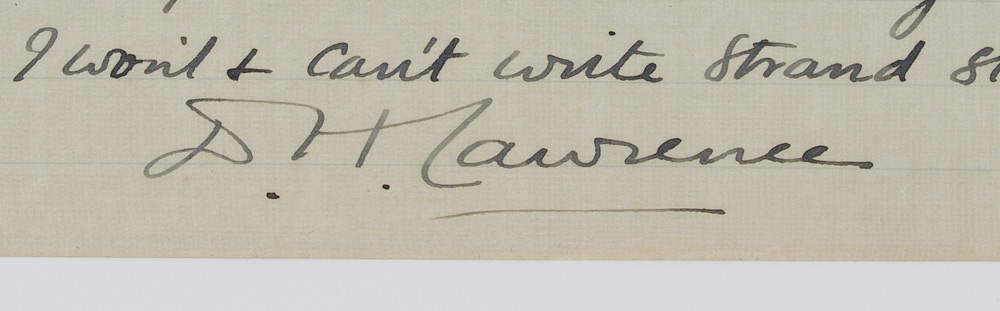 I won't & can't write Strand
D. H. Lawrence